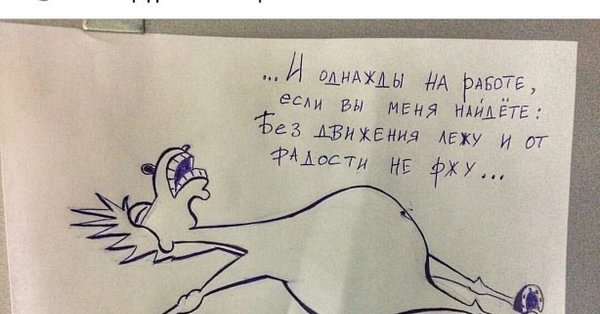 ...И однажды на работе,
если вы меня найдёте:
Без движения лежу и от
радости не ржу...